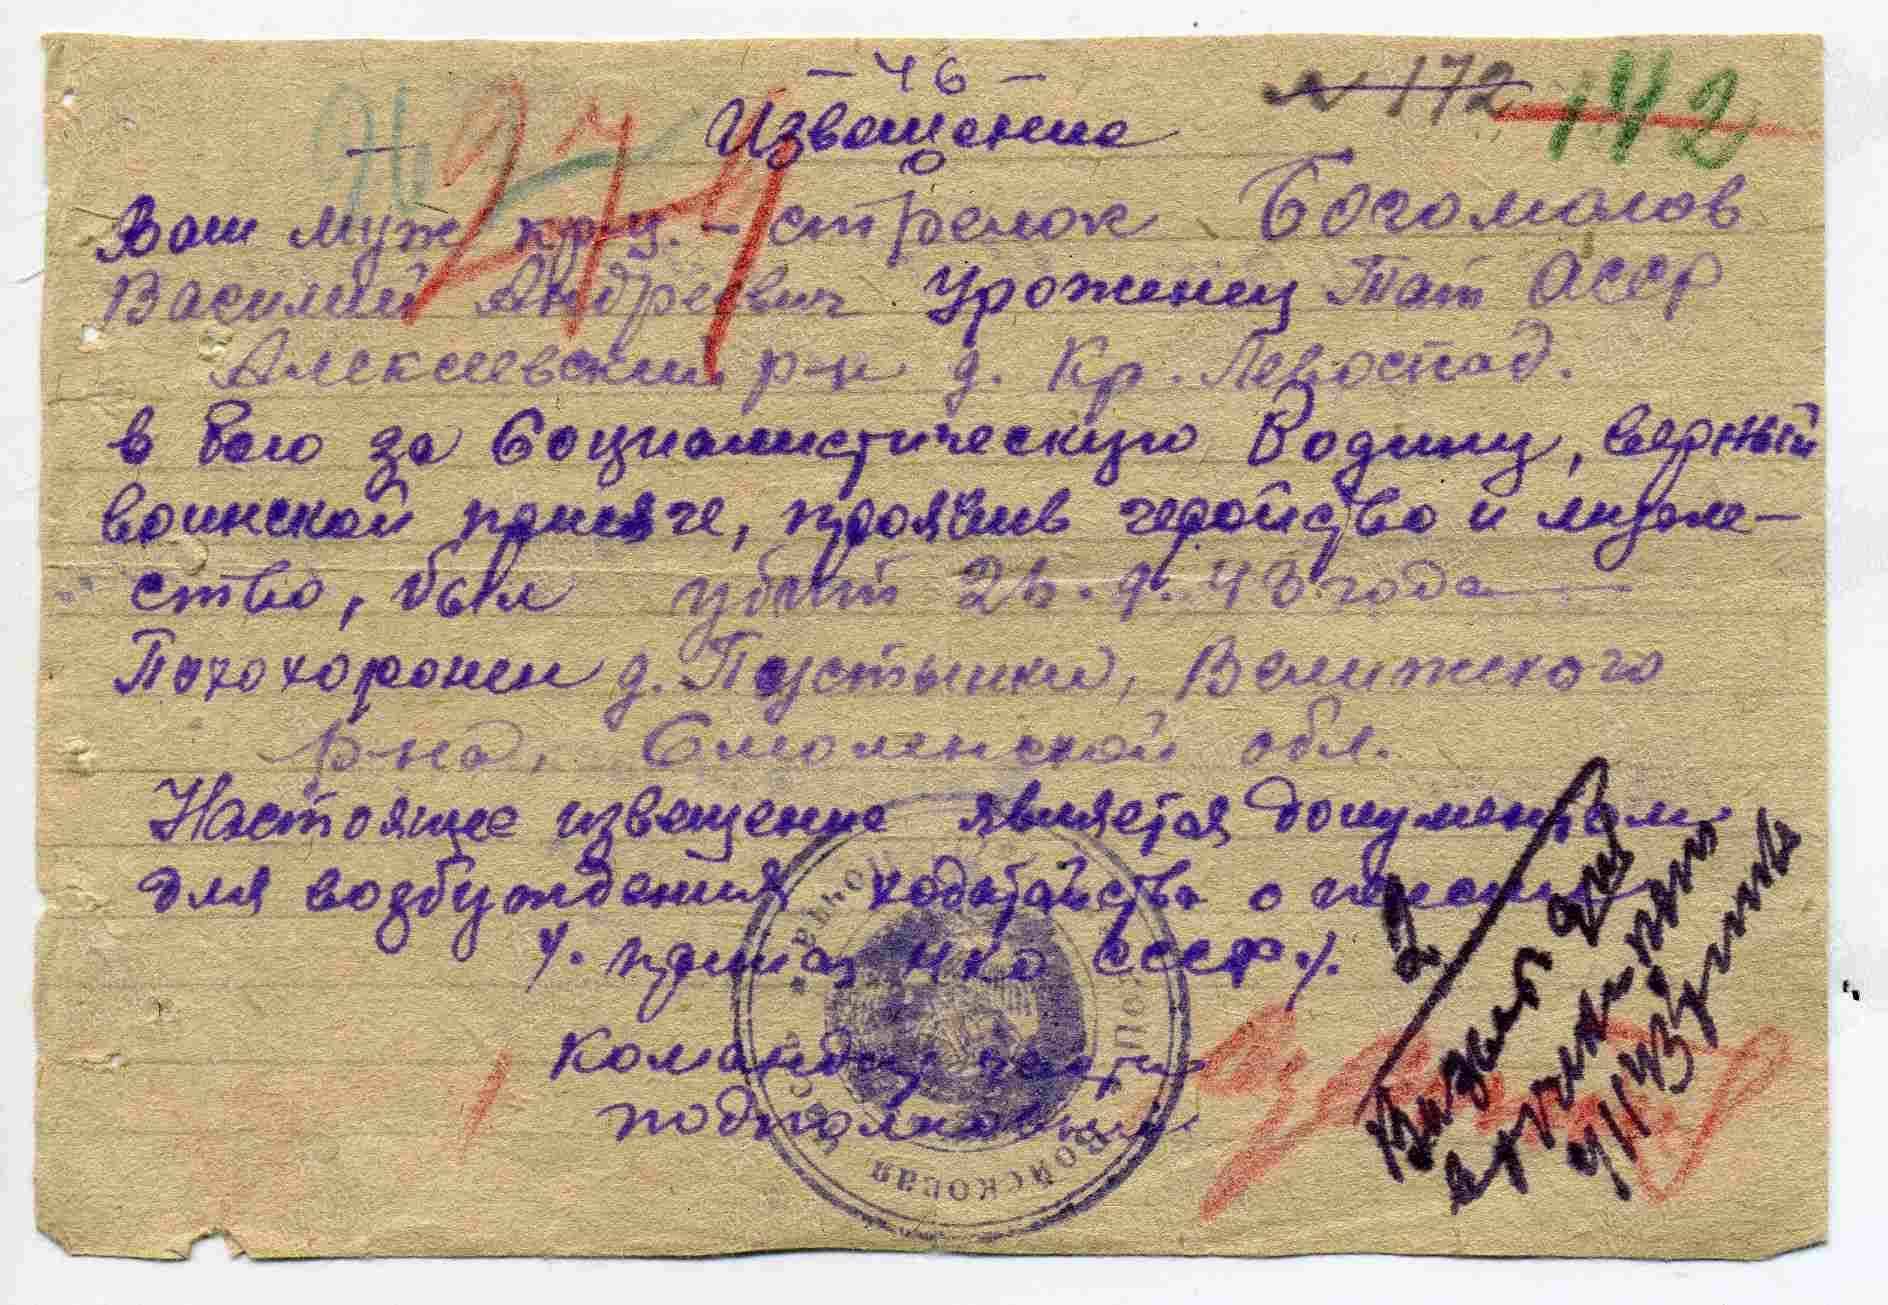 - 46 -
N 172 142
Извещение
Ваш муж кр-ц. - стрелок Богомолов
Василий Андреевич Уроженец Тат АССР
Алексеевский р-н д. Кр.
в бою за Социалистическую Родину, верный
воинской присяге, проявив геройство и муже-
ство, был убит 26.9.43 года
Похохоронен д. Пустынки, Велижского
р-на, Смоленской обл.
Настоящее извещение является документом
для возбуждения ходатайства о пенсии
/. приказ НКО СССР ./.
Командир части
подполковник
Войсковая